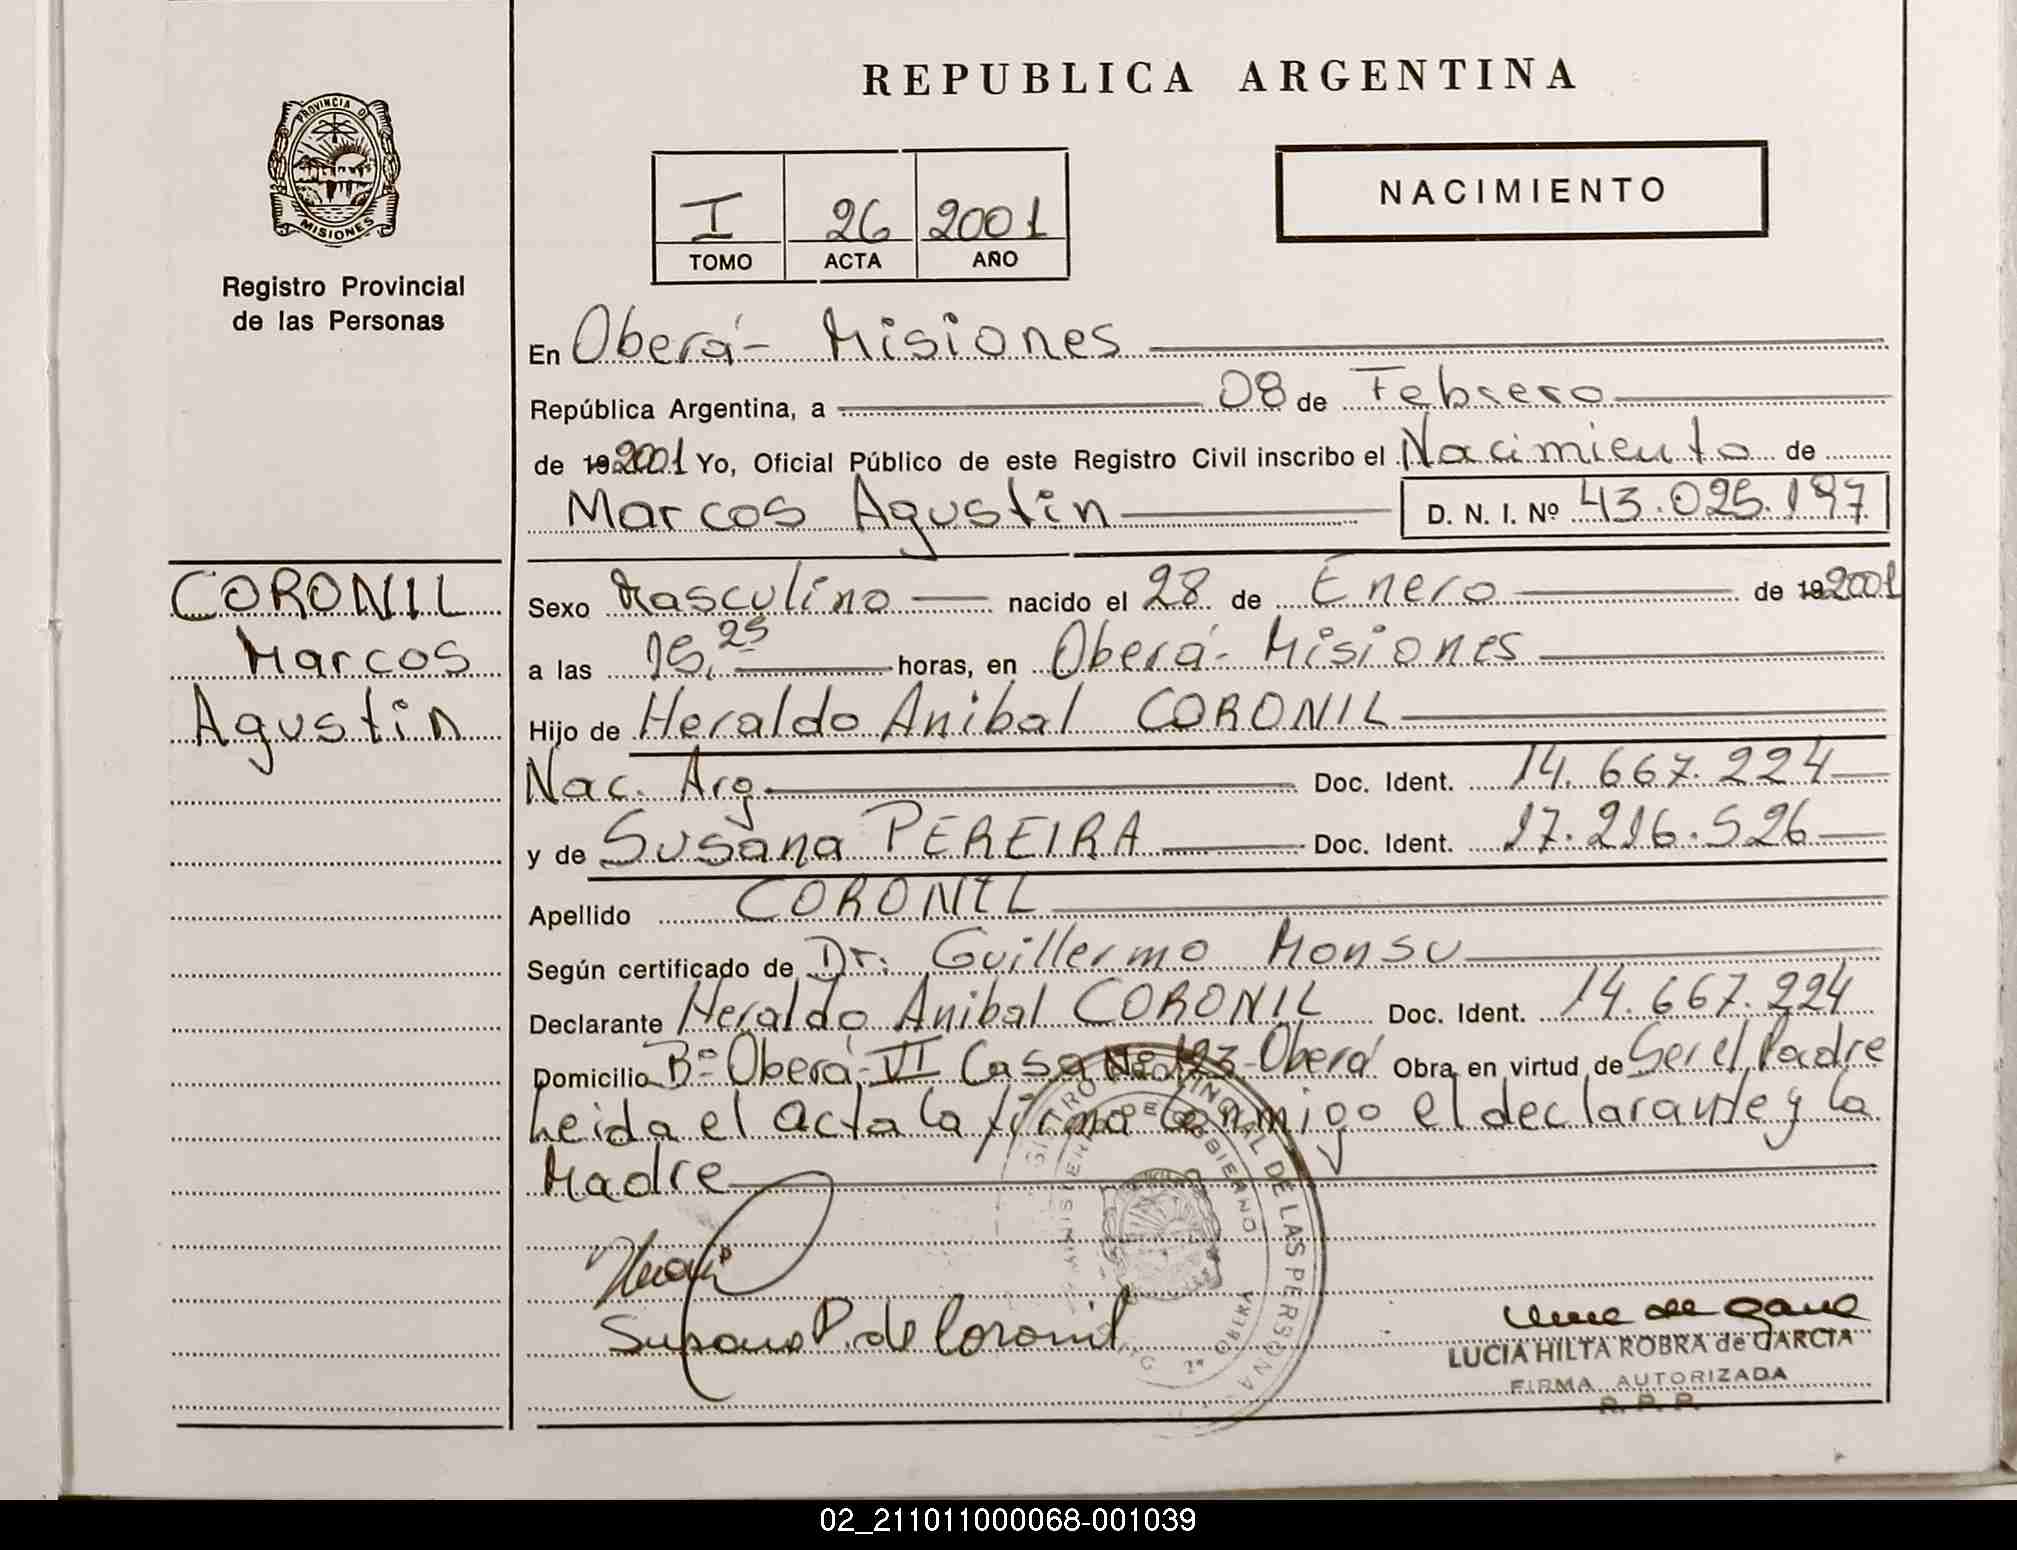 REPUBLICA ARGENTINA
PROVINCIA DE
MISIONES
Registro Provincial
de las Personas
I 26 2001
TOMO ACTA AÑO
NACIMIENTO
En Oberá - Misiones
República Argentina, a 08 de Febrero
de 19 2001 Yo, Oficial Público de este Registro Civil inscribo el Nacimiento de
Marcos Agustin D. N. I. Nº 43.025.197
CORONIL
Marcos
Agustin
Sexo Masculino nacido el 28 de Enero de 19 2001
a las 15,25 horas, en Oberá - Misiones
Hijo de Heraldo Anibal CORONIL
Nac. Arg. Doc. Ident. 14.667.224
y de Susana PEREIRA Doc. Ident. 17.216.526
Apellido CORONIL
Según certificado de Dr. Guillermo Monsu
Declarante Heraldo Anibal CORONIL Doc. Ident. 14.667.224
Domicilio Bº Oberá VI Casa Nº 123 - Oberá Obra en virtud de Ser el Padre
Leida el acta la firma conmigo el declarante y la
Madre
Susana P. de Coronil
LUCIA HILTA ROBRA de GARCIA
FIRMA AUTORIZADA
R. P. P.
02_211011000068-001039